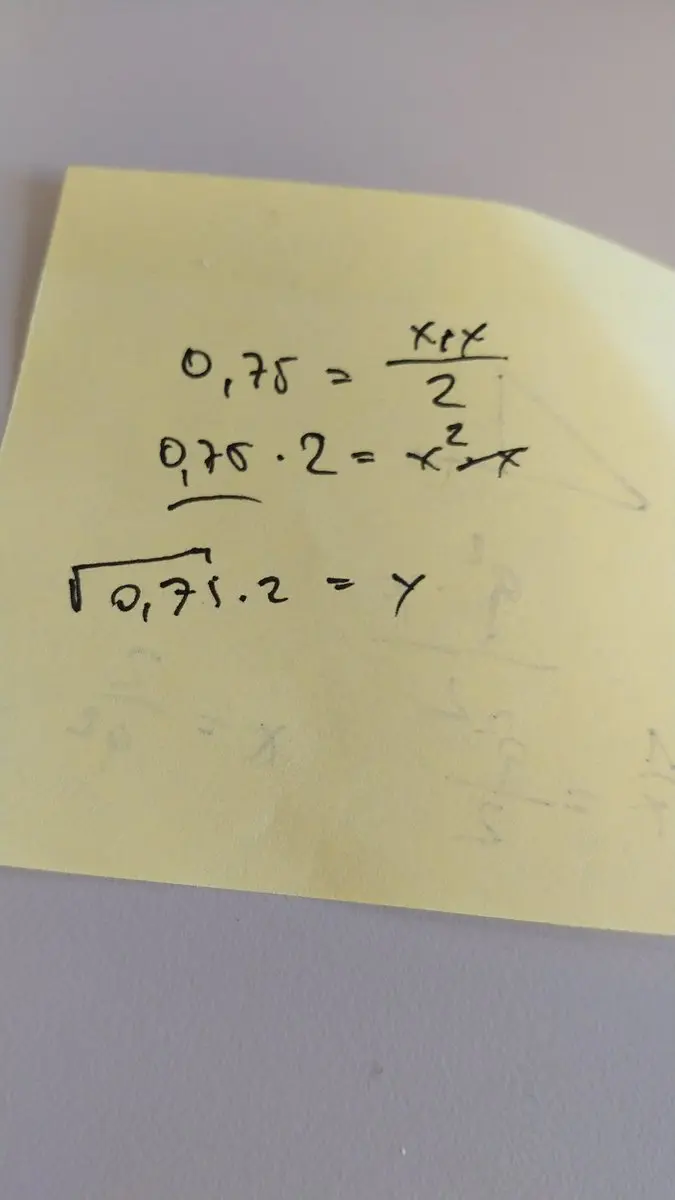 0,75 = x·x / 2
0,75 · 2 = x²
√0,75 · 2 = x